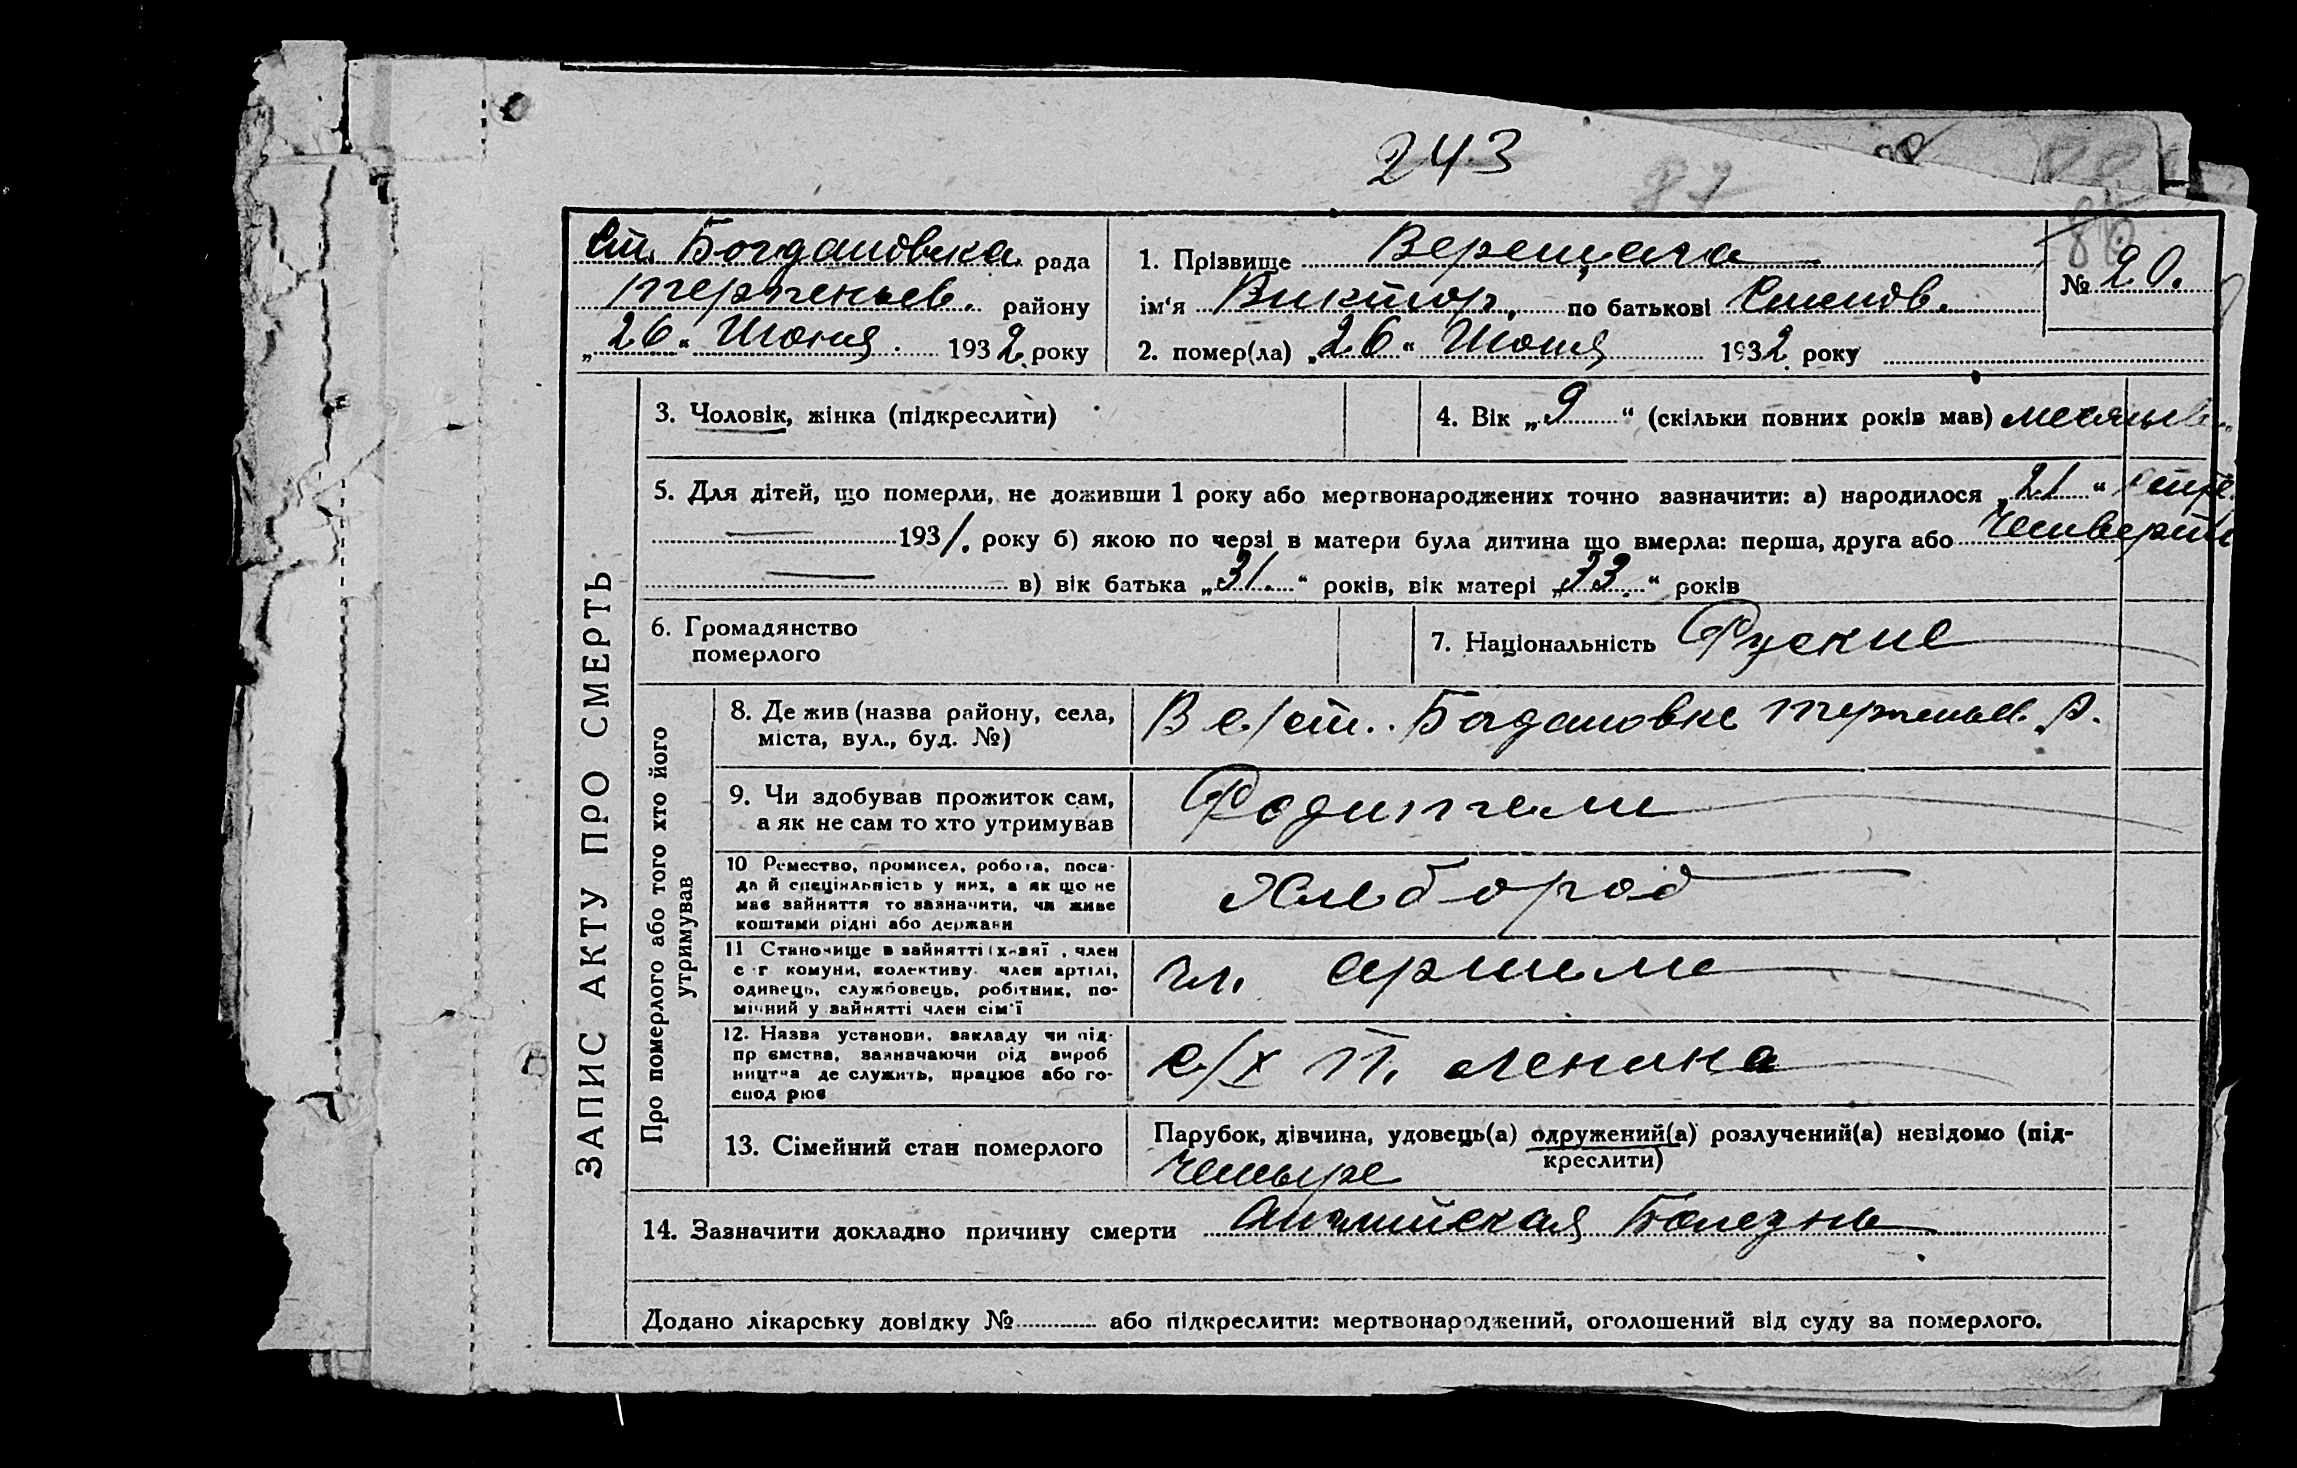 243
87
Ст. Богдановка рада
Терпеньев. району
„26“ Июня 1932 року
1. Прізвище Верещага
ім‘я Виктор, по батькові Симонов.
2. помер(ла) „26“ Июня 1932 року
№ 20.
86
ЗАПИС АКТУ ПРО СМЕРТЬ
3. Чоловік, жінка (підкреслити)
4. Вік „9“ (скільки повних років мав) месяцев
5. Для дітей, що померли, не доживши 1 року або мертвонароджених точно зазначити: а) народилося „21“
1931. року б) якою по черзі в матери була дитина що вмерла: перша, друга або четверти
в) вік батька „31.“ років, вік матері „33.“ років
6. Громадянство
померлого
7. Національність Руские
Про померлого або того хто його
утримував
8. Де жив (назва району, села,
міста, вул., буд. №)
В с/ст. Богдановке Терпеньев. Р.
9. Чи здобував прожиток сам,
а як не сам то хто утримував
Родители
10 Ремество, промисел, робота, поса-
да й спеціяльність у них, а як що не
має зайняття то зазначити, чи живе
коштами рідні або держави
Хлебороб
11 Становище в зайнятті (хазяї , член
с г комуни, колективу член артілі,
одинець, службовець, робітник, по-
мічний у зайнятті член сім‘ї
чл. артели
12. Назва установи, закладу чи під-
пр ємства, зазначаючи рід вироб
ництва де служить, працює або го-
спод рює
с/х П. Ленина
13. Сімейний стан померлого
Парубок, дівчина, удовець(а) одружений(а) розлучений(а) невідомо (під-
креслити)
Четыре
14. Зазначити докладно причину смерти Английская Болезнь
Додано лікарську довідку № або підкреслити: мертвонароджений, оголошений від суду за померлого.